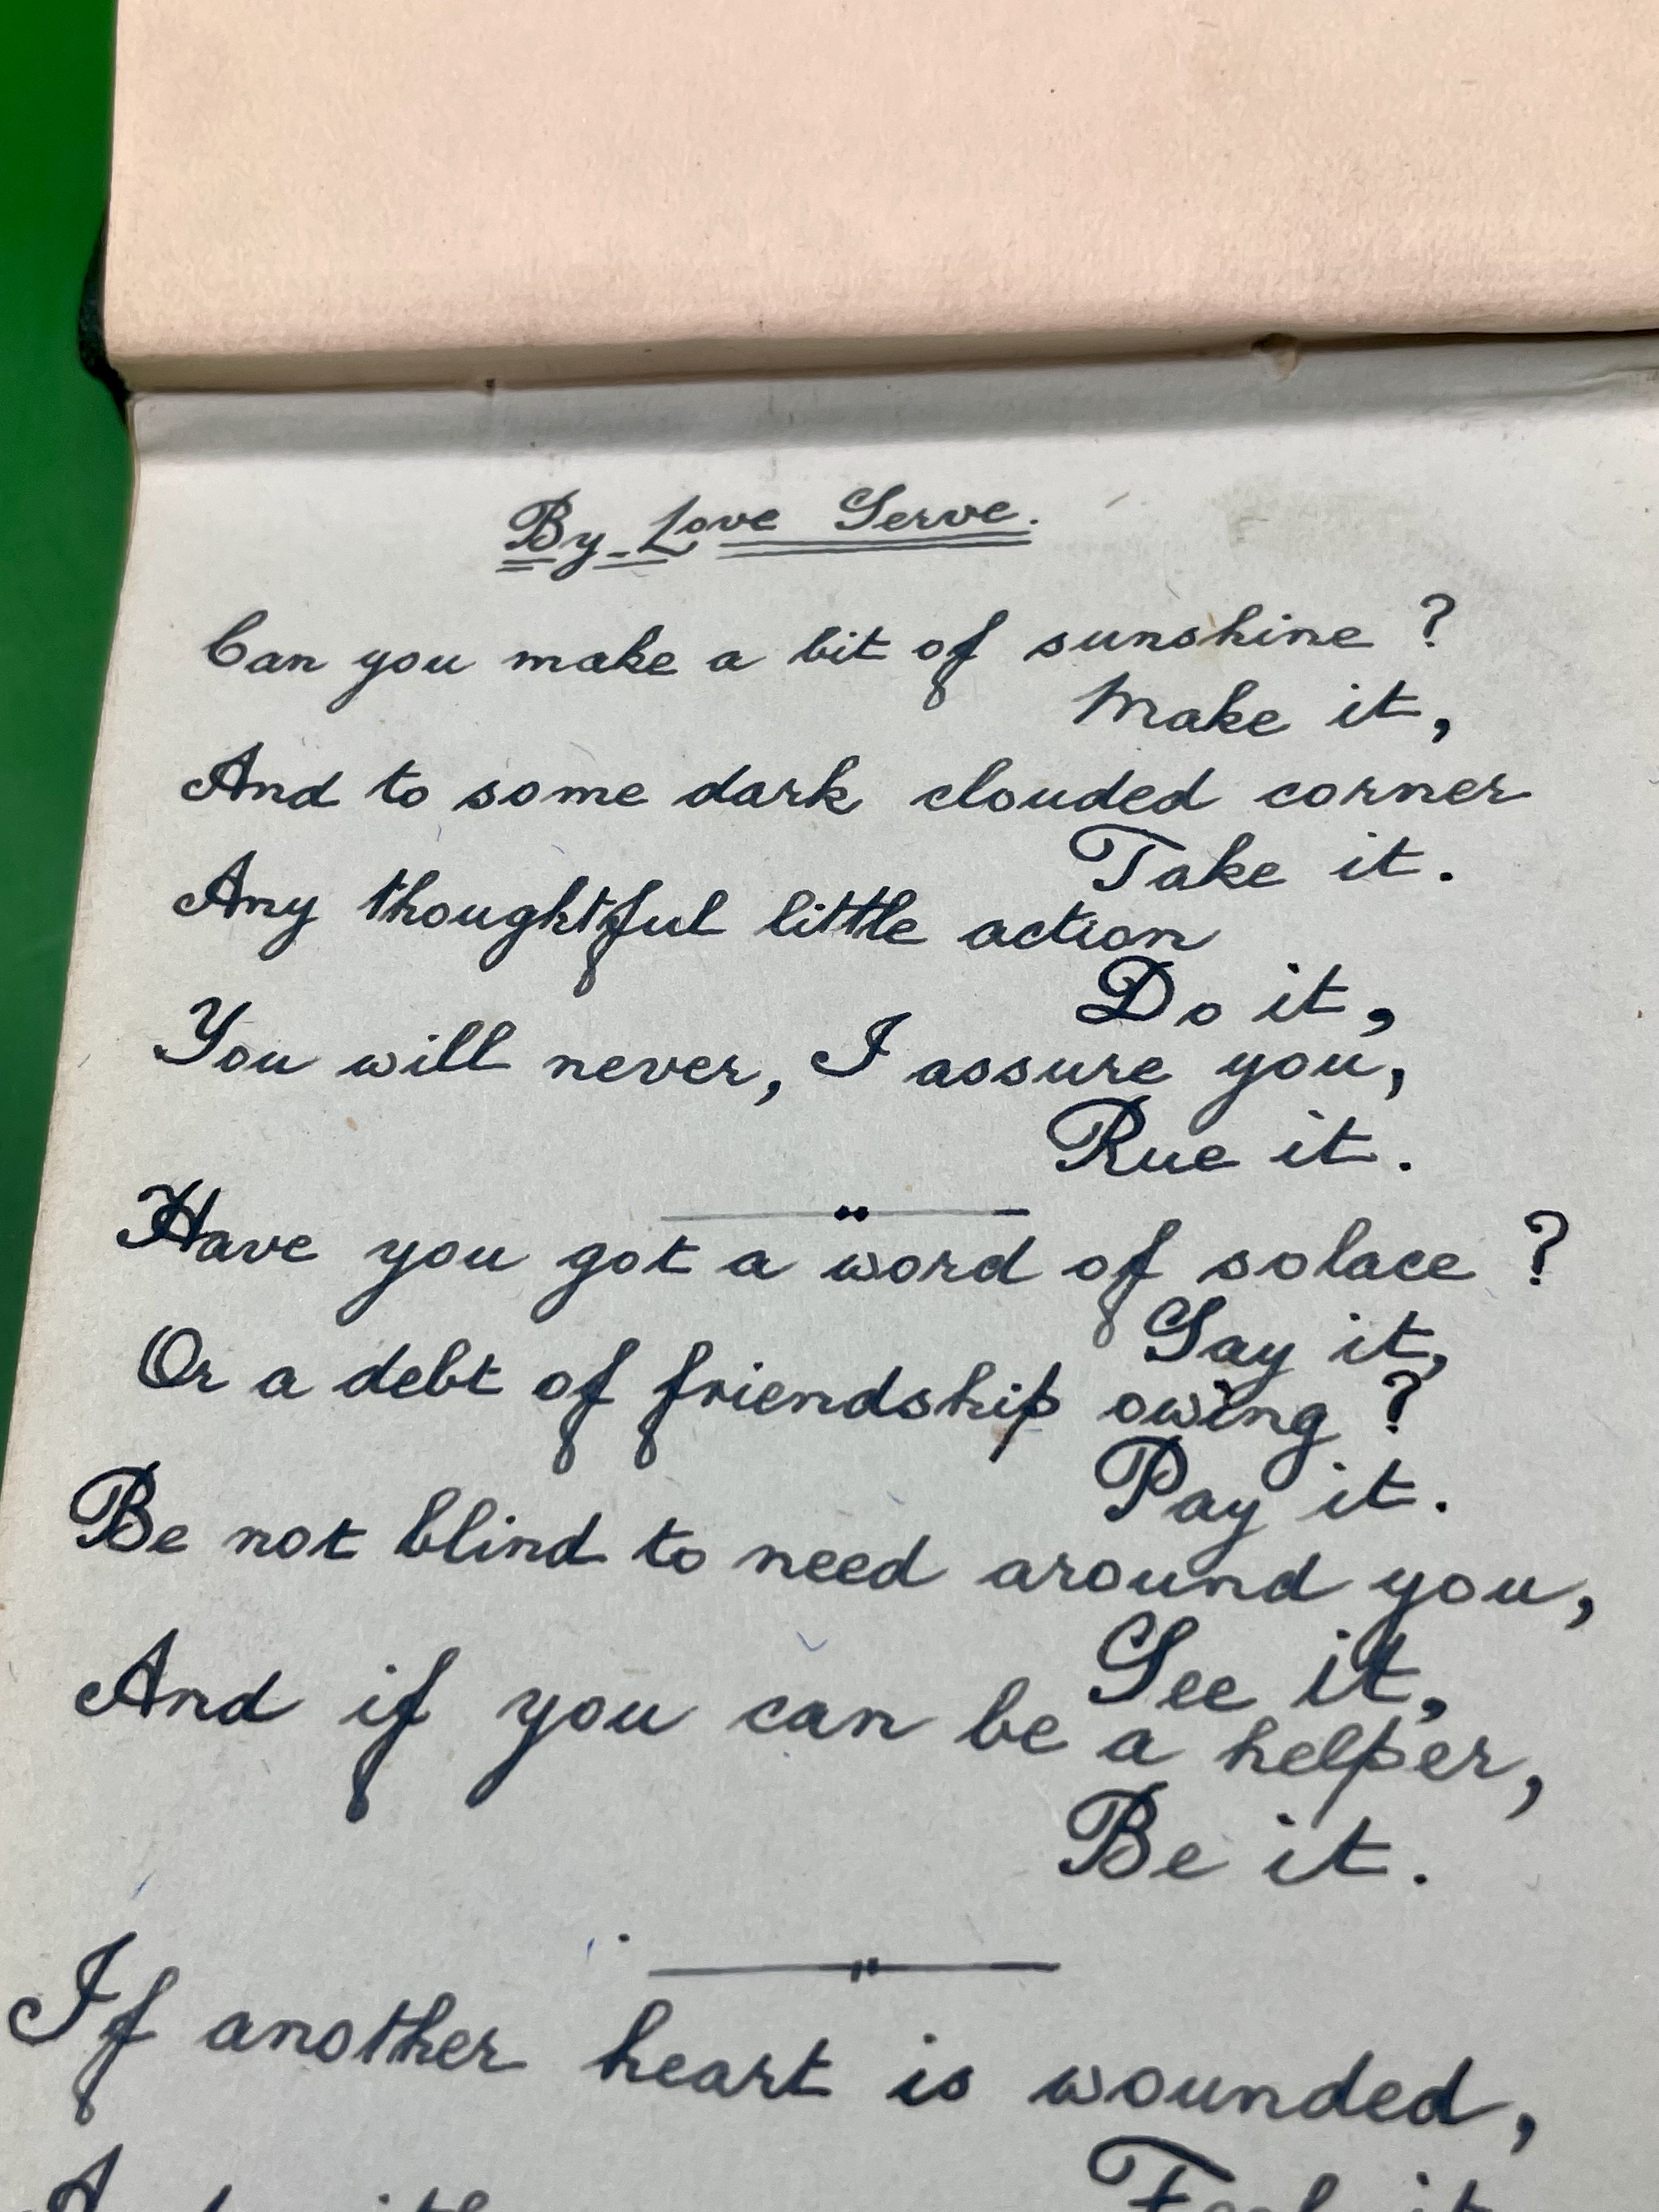 By Love Serve.
Can you make a bit of sunshine?
Make it,
And to some dark clouded corner
Take it.
Any thoughtful little action
Do it,
You will never, I assure you,
Rue it.
Have you got a word of solace?
Say it,
Or a debt of friendship owing?
Pay it.
Be not blind to need around you,
See it,
And if you can be a helper,
Be it.
If another heart is wounded,
Feel it